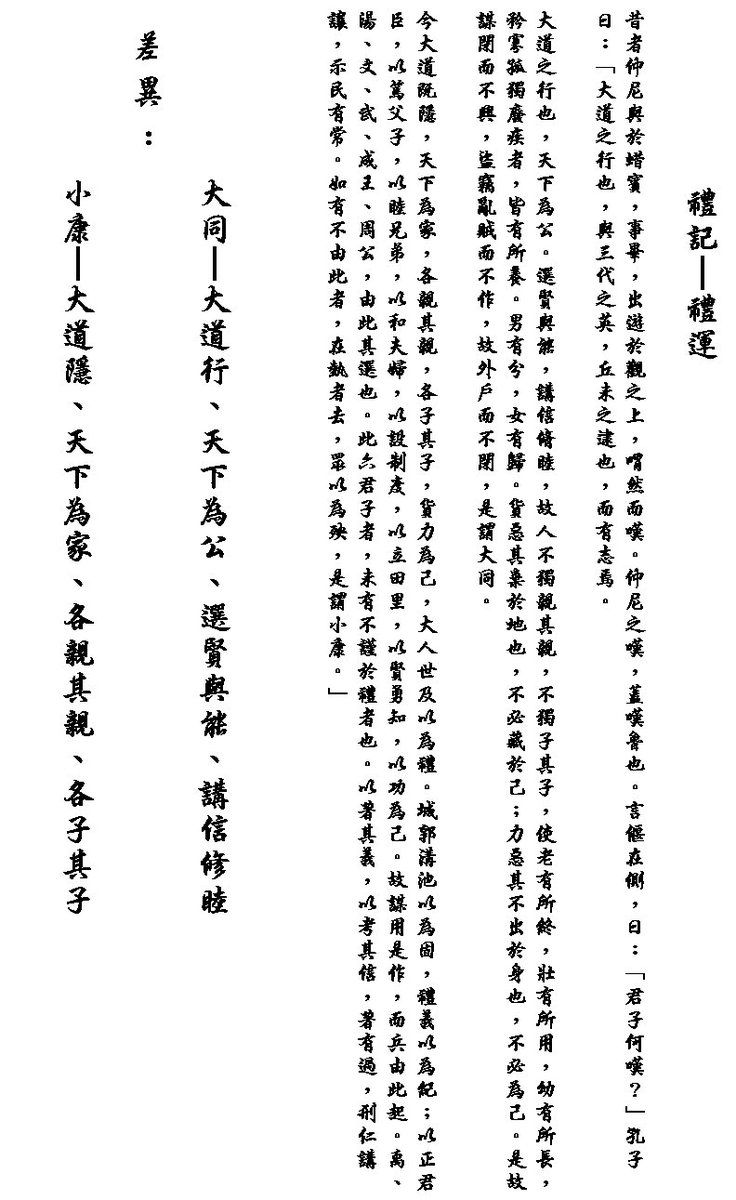 禮記—禮運
昔者仲尼與於蜡賓，事畢，出遊於觀之上，喟然而嘆。仲尼之嘆，蓋嘆魯也。言偃在側，曰：「君子何嘆？」孔子
曰：「大道之行也，與三代之英，丘未之逮也，而有志焉。
大道之行也，天下為公。選賢與能，講信脩睦，故人不獨親其親，不獨子其子，使老有所終，壯有所用，幼有所長，
矜寡孤獨廢疾者，皆有所養。男有分，女有歸。貨惡其棄於地也，不必藏於己；力惡其不出於身也，不必為己。是故
謀閉而不興，盜竊亂賊而不作，故外戶而不閉，是謂大同。
今大道既隱，天下為家，各親其親，各子其子，貨力為己，大人世及以為禮。城郭溝池以為固，禮義以為紀；以正君
臣，以篤父子，以睦兄弟，以和夫婦，以設制度，以立田里，以賢勇知，以功為己。故謀用是作，而兵由此起。禹、
湯、文、武、成王、周公，由此其選也。此六君子者，未有不謹於禮者也。以著其義，以考其信，著有過，刑仁講
讓，示民有常。如有不由此者，在埶者去，眾以為殃，是謂小康。」
差異：
大同—大道行、天下為公、選賢與能、講信修睦
小康—大道隱、天下為家、各親其親、各子其子